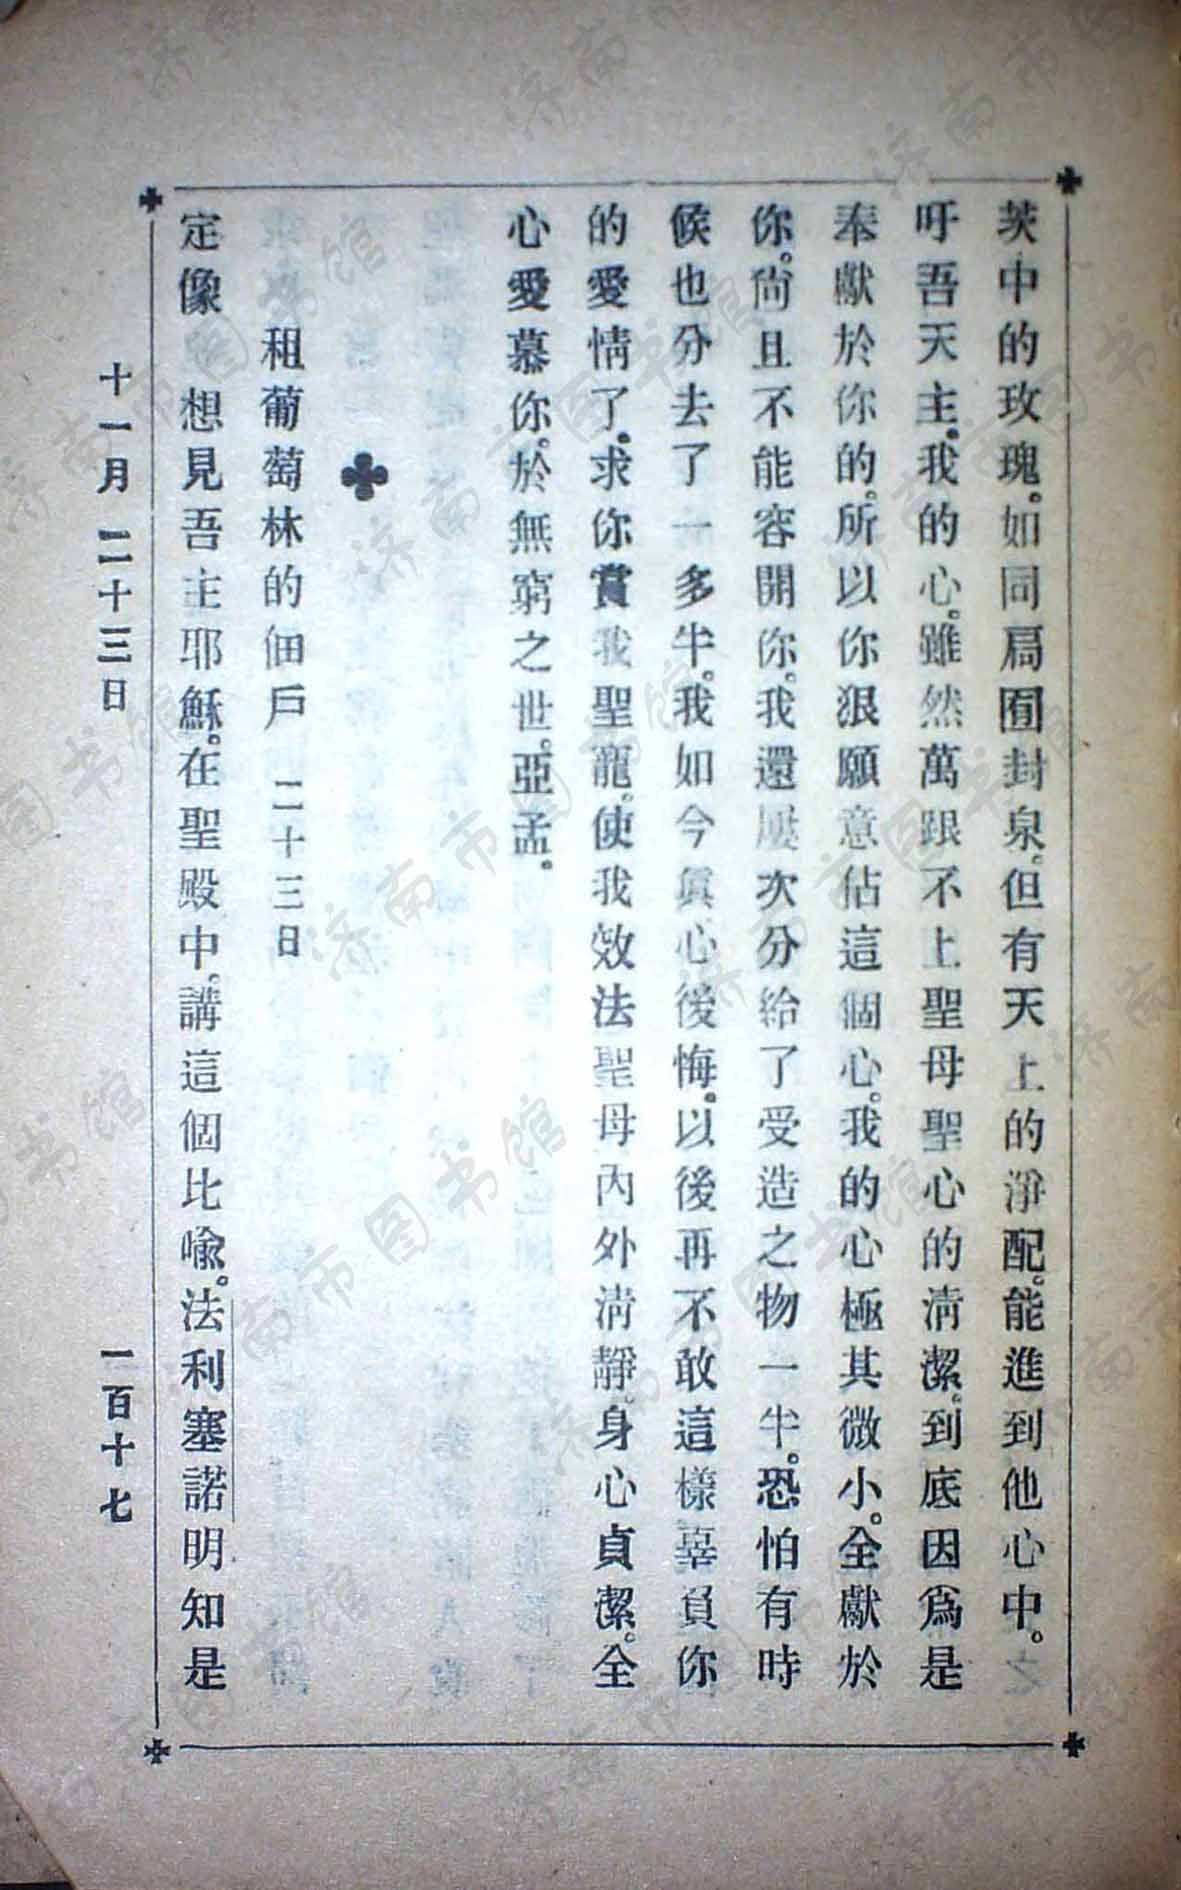 茨中的玫瑰。如同扃囿封泉。但有天上的淨配。能進到他心中。
吁吾天主。我的心。雖然萬跟不上聖母聖心的淸潔。到底因爲是
奉獻於你的。所以你狠願意佔這個心。我的心極其微小。全獻於
你。尙且不能容開你。我還屢次分給了受造之物一半。恐怕有時
候也分去了一多半。我如今眞心後悔。以後再不敢這樣辜負你
的愛情了。求你賞我聖寵。使我效法聖母內外淸靜。身心貞潔。全
心愛慕你。於無窮之世。亞孟。
租葡萄林的佃戶 二十三日
定像 想見吾主耶穌。在聖殿中。講這個比喩。法利塞諾明知是
十一月 二十三日 一百十七
济南市图书馆